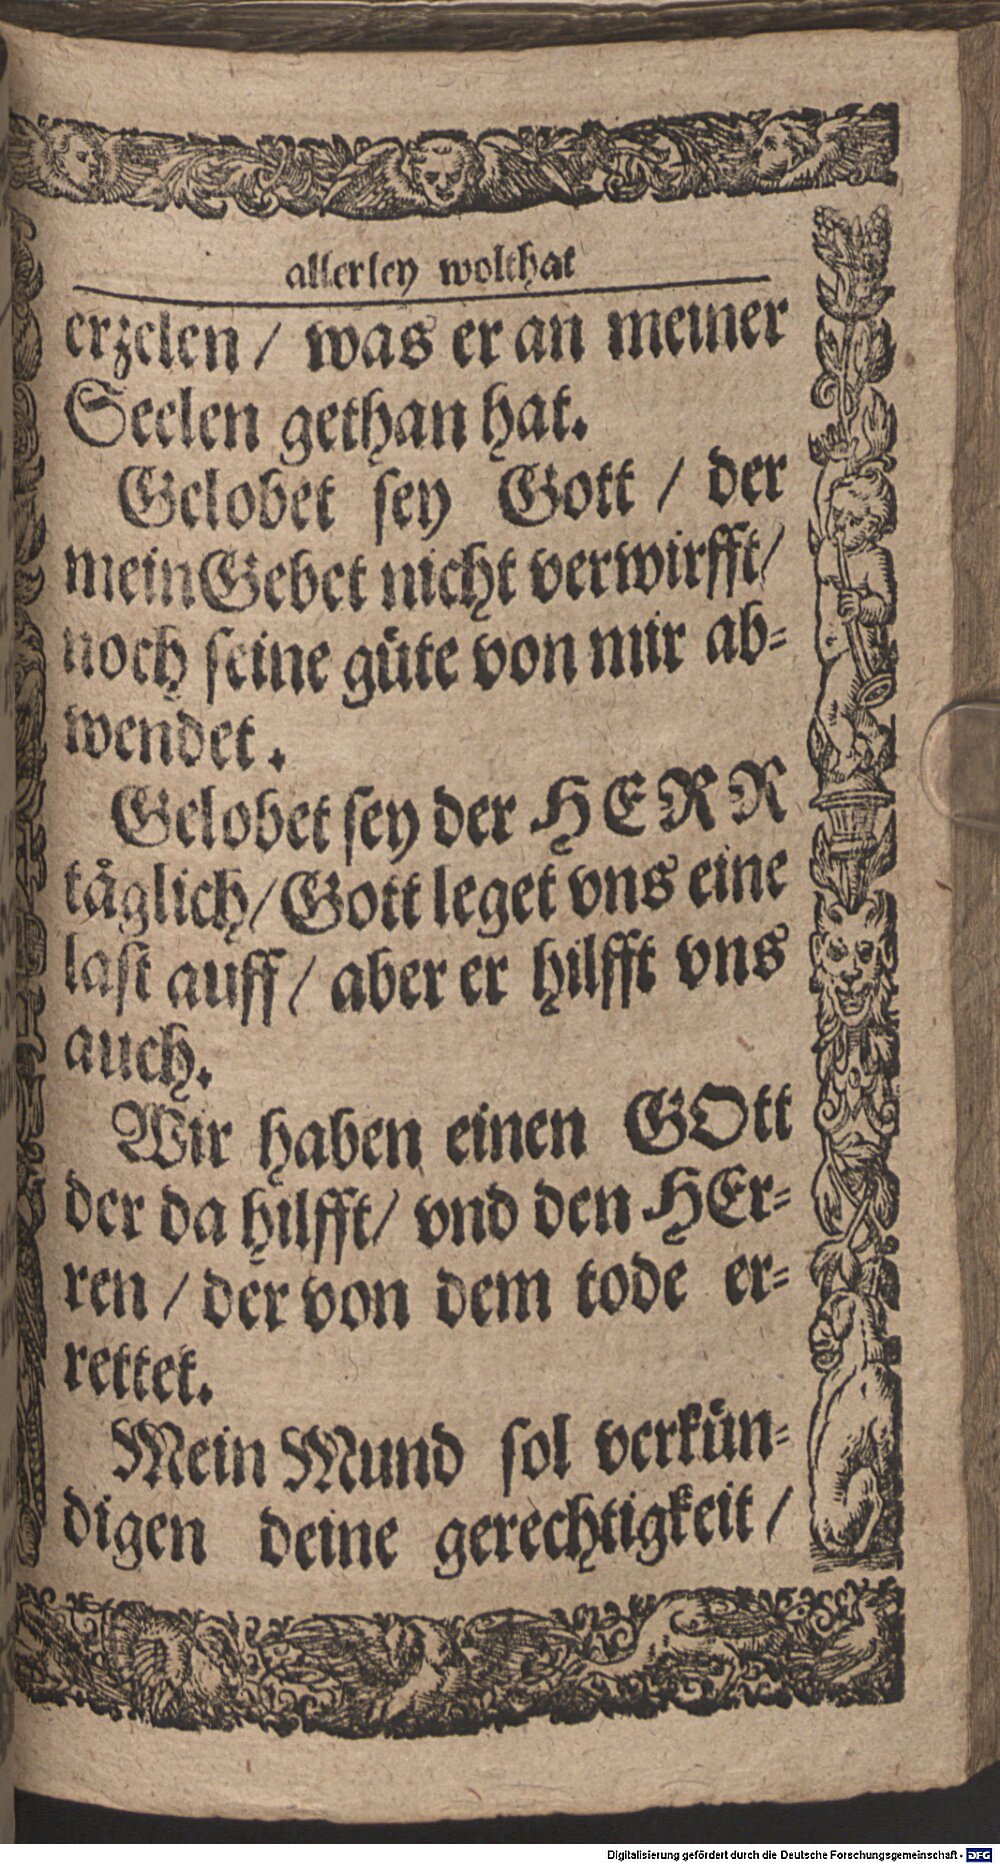 allerley wolthat
erzelen / was er an meiner
Seelen gethan hat.
Gelobet sey Gott / der
mein Gebet nicht verwirfft/
noch seine güte von mir ab-
wendet.
Gelobet sey der HERR
täglich/ Gott leget vns eine
last auff/ aber er hilfft vns
auch.
Wir haben einen GOtt
der da hilfft/ vnd den HEr-
ren / der von dem tode er-
rettet.
Mein Mund sol verkün-
digen deine gerechtigkeit/
Digitalisierung gefördert durch die Deutsche Forschungsgemeinschaft - DFG